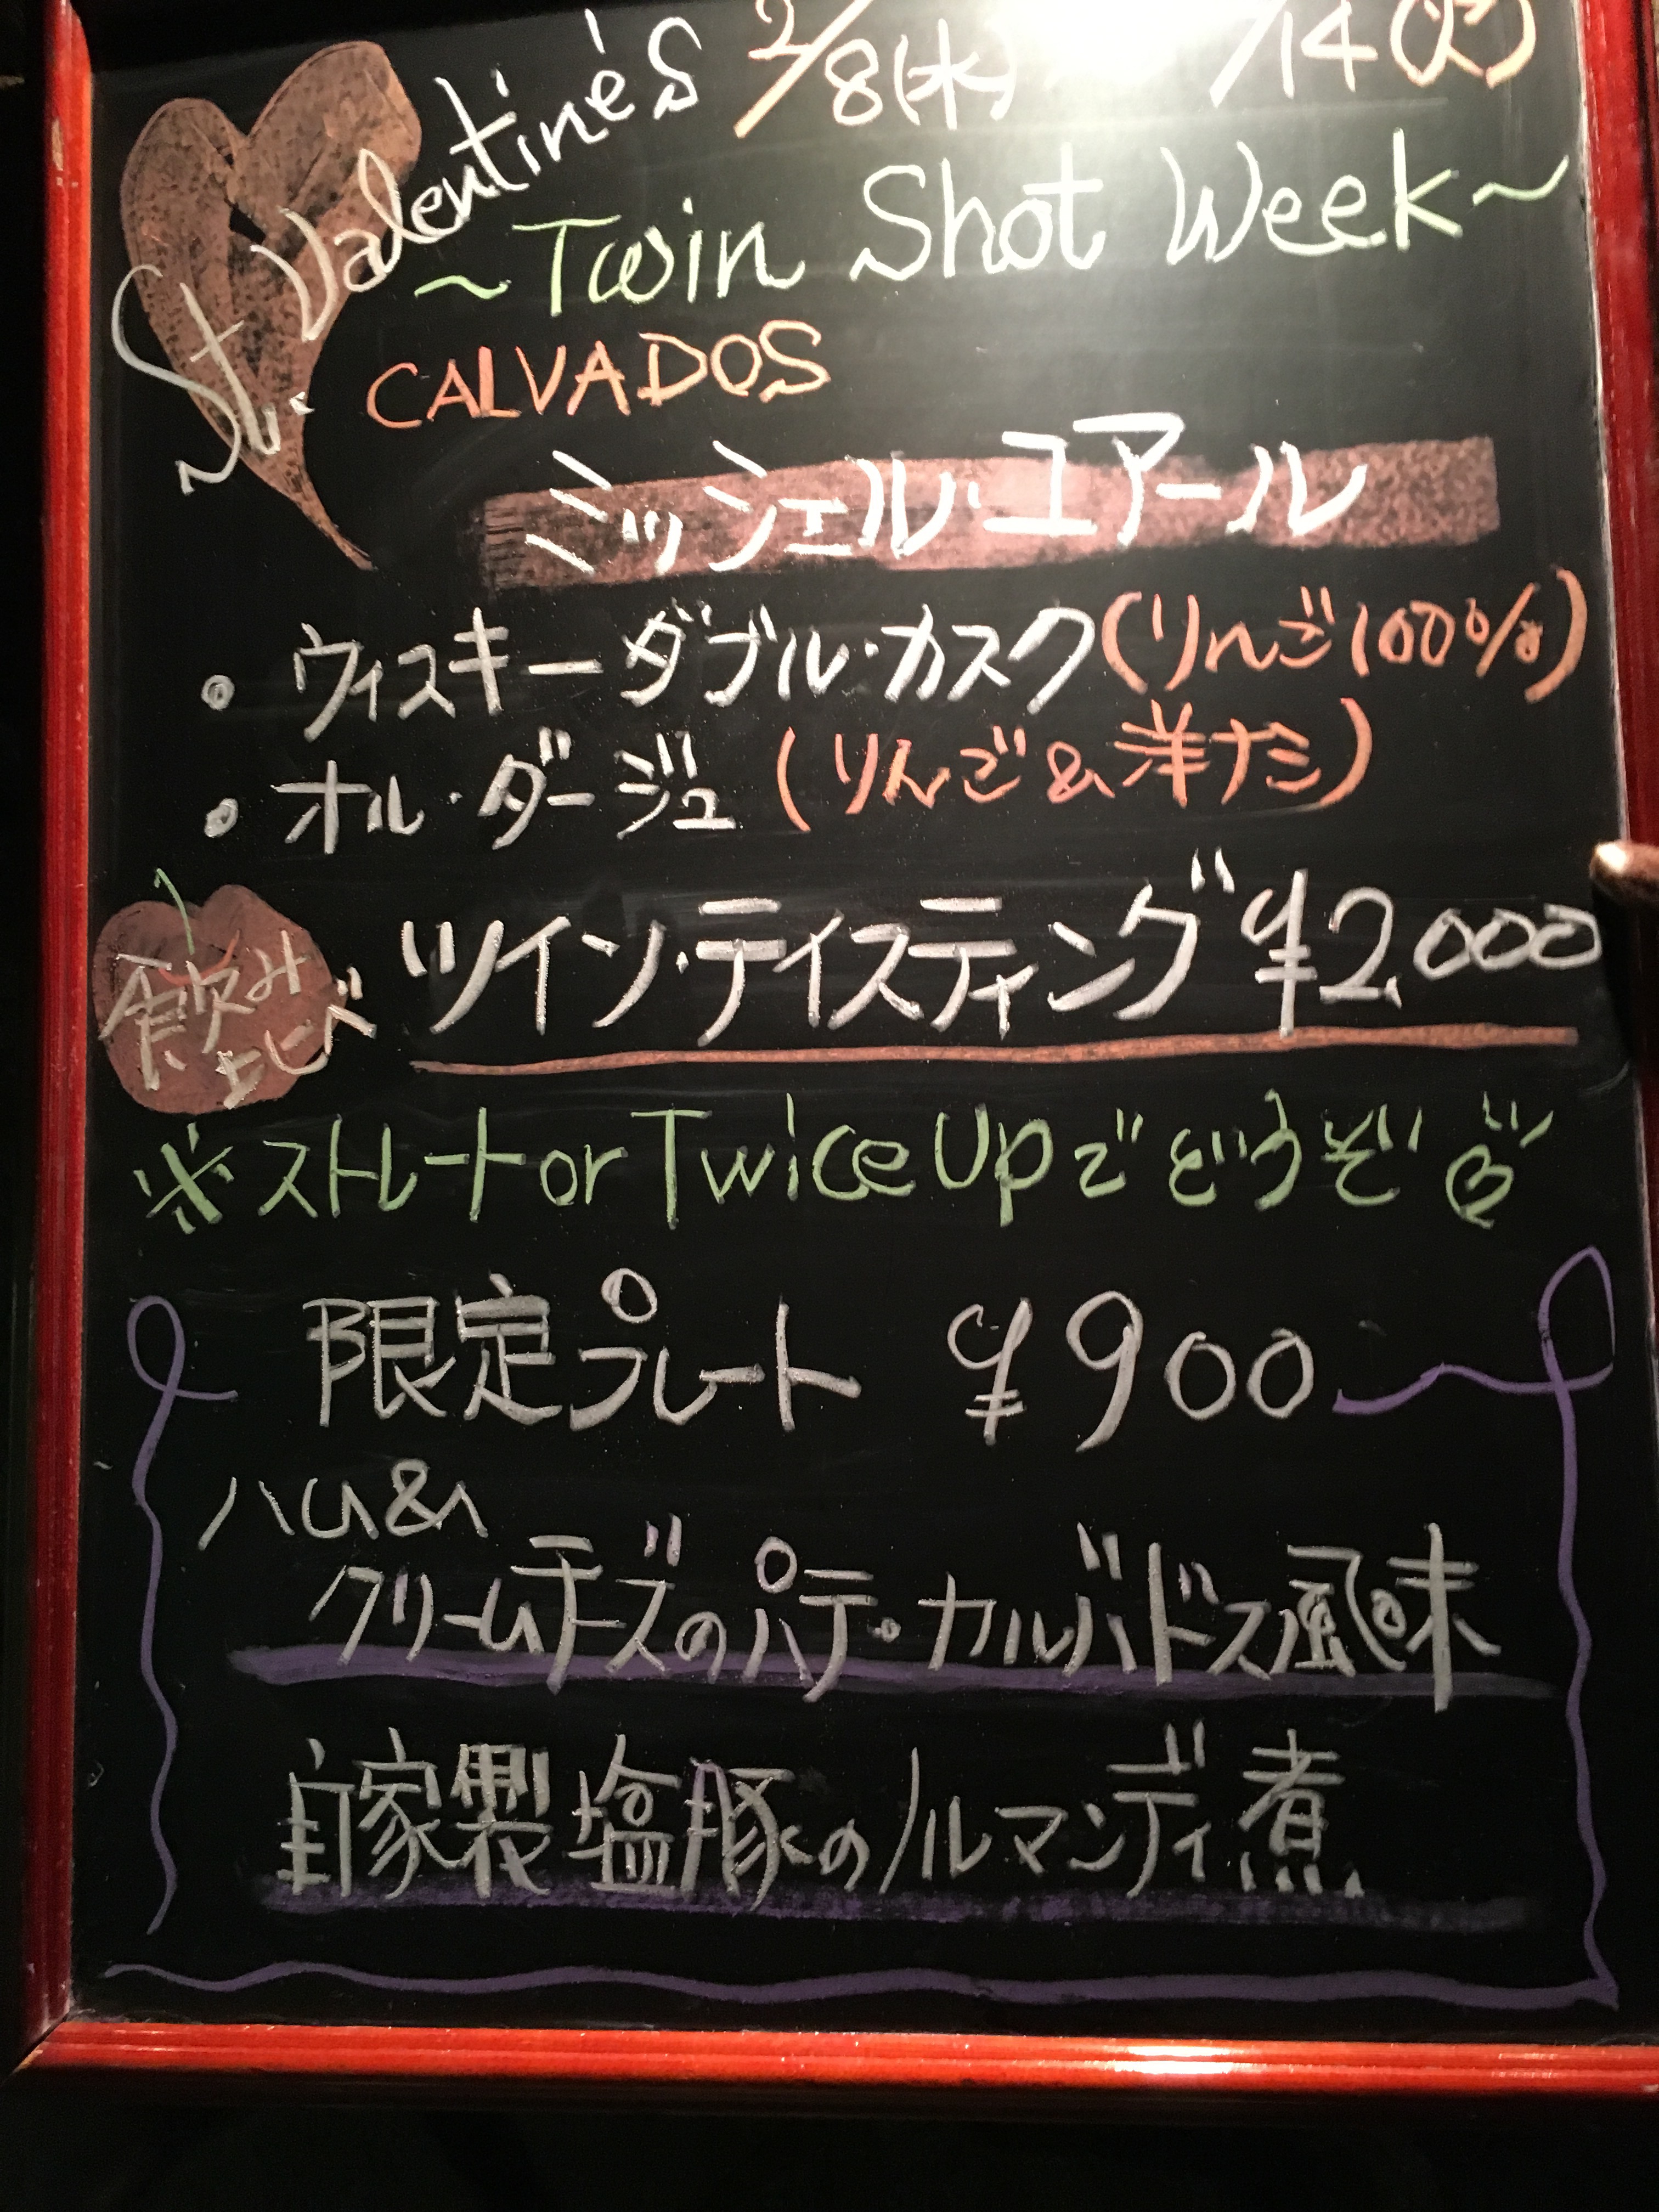 St. Valentine's 2/8(水) /14(火)
～Twin Shot Week～
CALVADOS
ミッシェル・ユアール
• ウィスキーダブル・カスク(りんご100%)
• オル・ダージュ(りんご&洋ナシ)
飲み比べ ツイン・テイスティング ¥2,000
※ストレートor Twice Upでどうぞ
限定プレート ¥900
ハム&
クリームチーズのパテ・カルバドス風味
自家製塩豚のノルマンディ煮